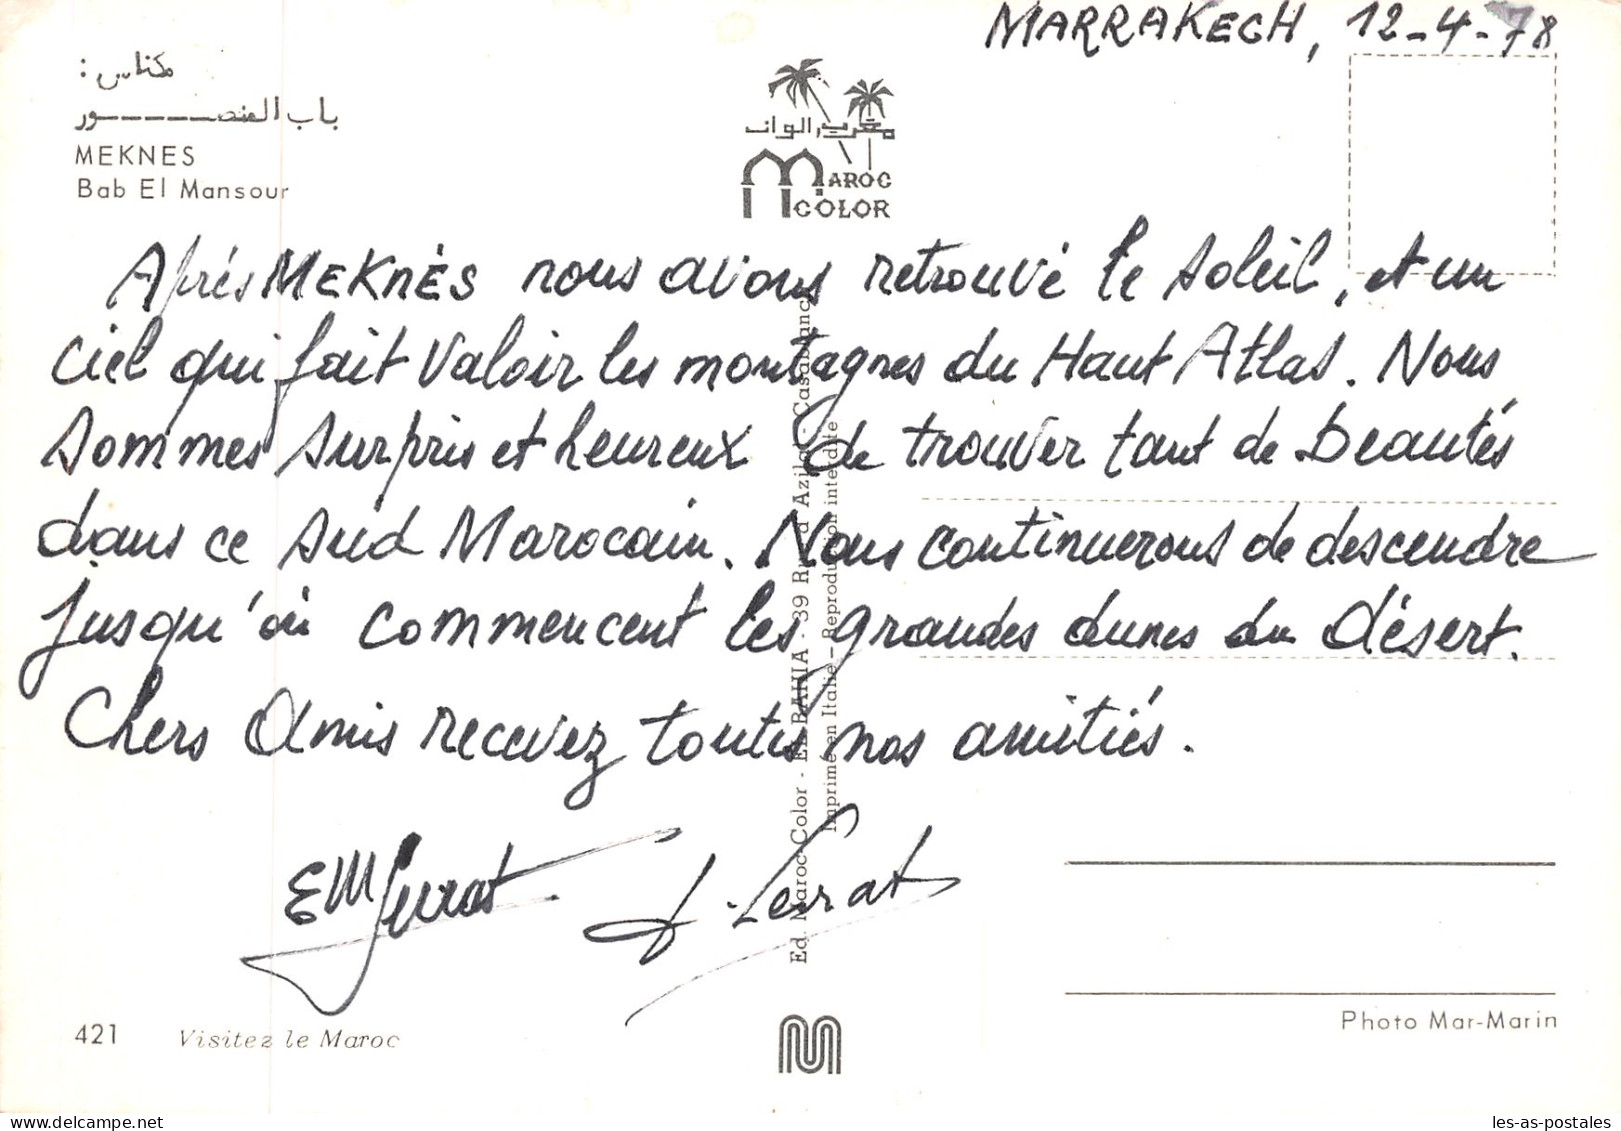 MARRAKECH, 12-4-78
مكناس :
باب المنصـــور
MEKNES
Bab El Mansour
MAROC
COLOR
Après MEKNÈS nous avons retrouvé le soleil, et un
ciel qui fait valoir les montagnes du Haut Atlas. Nous
sommes surpris et heureux de trouver tant de beautés
dans ce sud Marocain. Nous continuerons de descendre
jusqu'où commencent les grandes dunes du Désert.
Chers Amis recevez toutes nos amitiés.
Ed. Maroc-Color - EL BAHIA - 39 Rue d'Azilal - Casablanca
Imprimé en Italie - Reproduction interdite
421
Visitez le Maroc
Photo Mar-Marin
les-as-postales